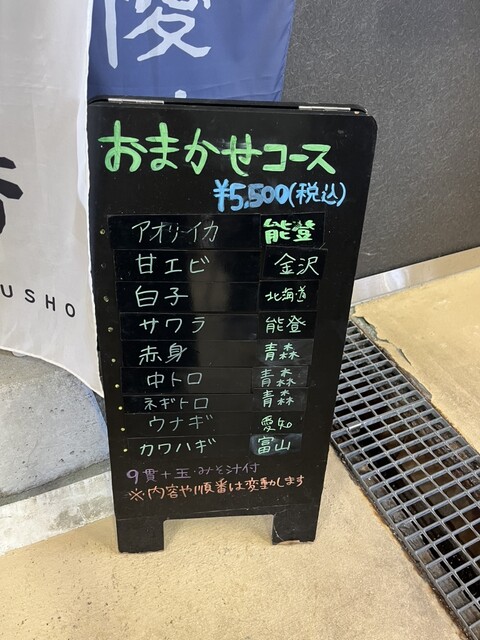 優
USHO
おまかせコース
¥5,500(税込)
アオリイカ 能登
甘エビ 金沢
白子 北海道
サワラ 能登
赤身 青森
中トロ 青森
ネギトロ 青森
ウナギ 愛知
カワハギ 富山
9貫+玉・みそ汁付
※内容や順番は変動します